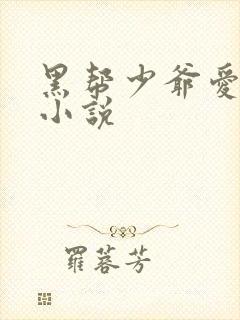 黑帮少爷愛
小説
羅蓉芳